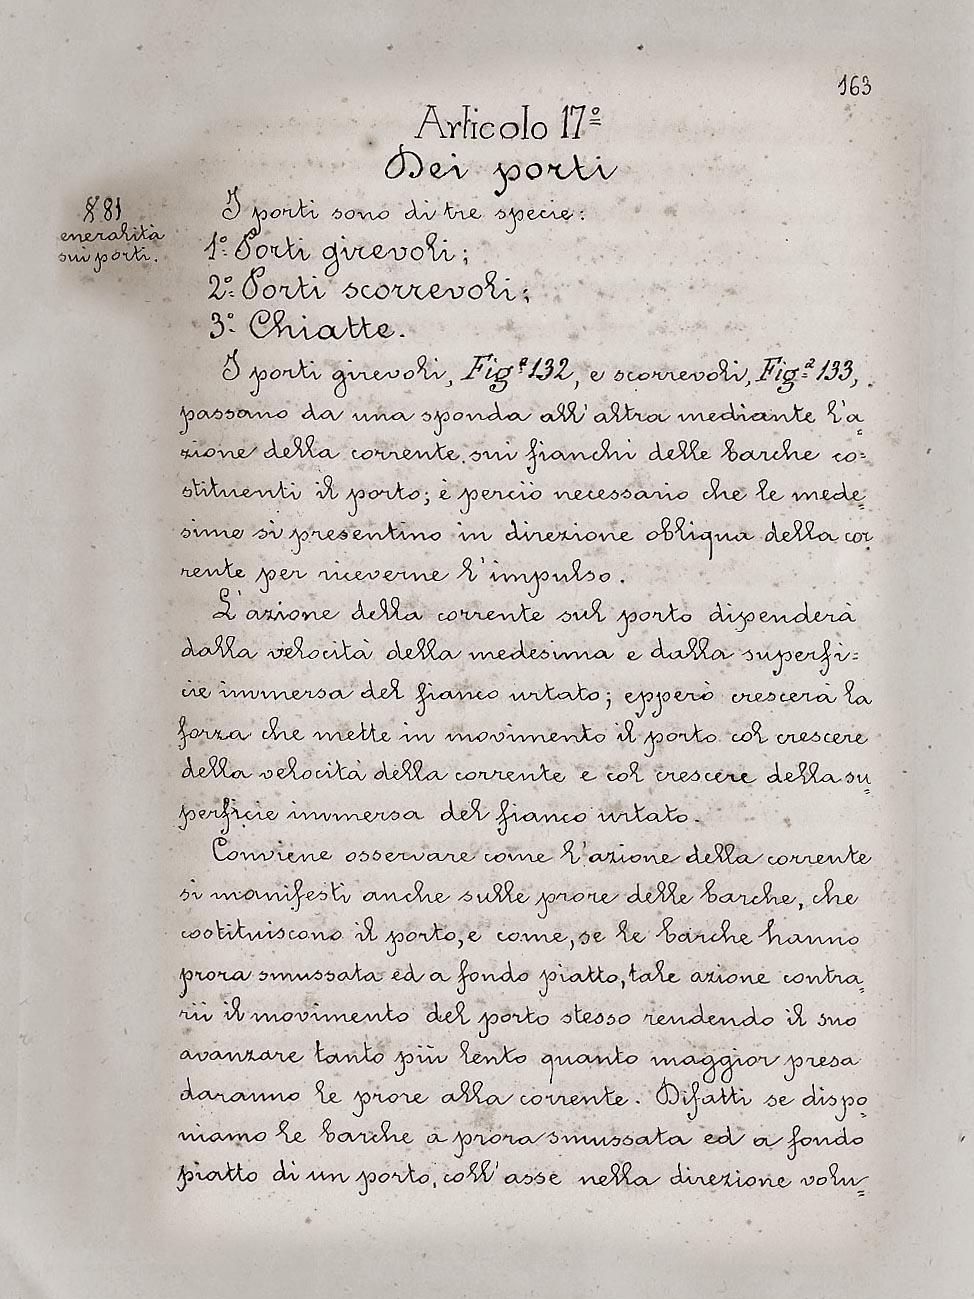 163
Articolo 17º
Dei porti
§ 81
eneralità
sui porti.
I porti sono di tre specie:
1º Porti girevoli;
2º Porti scorrevoli;
3º Chiatte.
I porti girevoli, Figª 132, e scorrevoli, Figª 133,
passano da una sponda all'altra mediante l'a=
zione della corrente sui fianchi delle barche co=
stituenti il porto; è perciò necessario che le mede=
sime si presentino in direzione obliqua della cor
rente per riceverne l'impulso.
L'azione della corrente sul porto dipenderà
dalla velocità della medesima e dalla superfi=
cie immersa del fianco urtato; epperò crescerà la
forza che mette in movimento il porto col crescere
della velocità della corrente e col crescere della su=
perficie immersa del fianco urtato.
Conviene osservare come l'azione della corrente
si manifesti anche sulle prore delle barche, che
costituiscono il porto, e come, se le barche hanno
prora smussata ed a fondo piatto, tale azione contra=
rii il movimento del porto stesso rendendo il suo
avanzare tanto più lento quanto maggior presa
daranno le prore alla corrente. Difatti se dispo=
niamo le barche a prora smussata ed a fondo
piatto di un porto, coll'asse nella direzione volu=